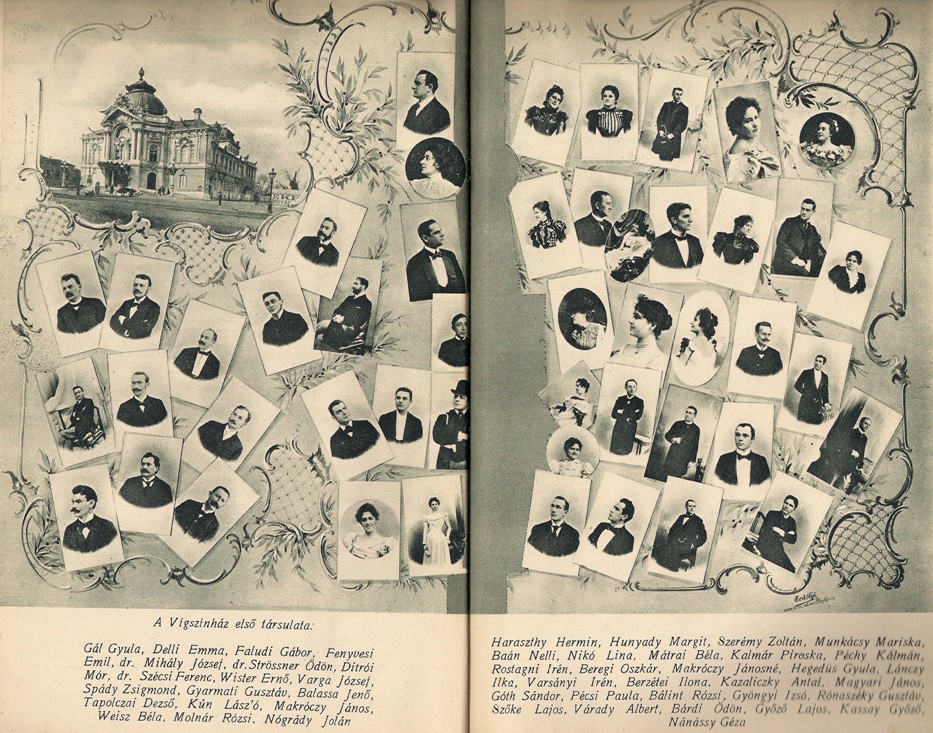 A Vígszínház első társulata:
Gál Gyula, Delli Emma, Faludi Gábor, Fenyvesi
Emil, dr. Mihály József, dr. Strössner Ödön, Ditrói
Mór, dr. Szécsi Ferenc, Wister Ernő, Varga József,
Spády Zsigmond, Gyarmati Gusztáv, Balassa Jenő,
Tapolczai Dezső, Kún Lász'ó, Makróczy János,
Weisz Béla, Molnár Rózsi, Nógrády Jolán
Haraszthy Hermin, Hunyady Margit, Szerémy Zoltán, Munkácsy Mariska,
Baán Nelli, Nikó Lina, Mátrai Béla, Kalmár Piroska, Péchy Kálmán,
Rostagni Irén, Beregi Oszkár, Makróczy Jánosné, Hegedüs Gyula, Lánczy
Ilka, Varsányi Irén, Berzétei Ilona, Kazaliczky Antal, Magyari János,
Góth Sándor, Pécsi Paula, Bálint Rózsi, Gyöngyi Izsó, Rónaszéky Gusztáv,
Szőke Lajos, Várady Albert, Bárdi Ödön, Győző Lajos, Kassay Győző,
Nánássy Géza
Erdélyi